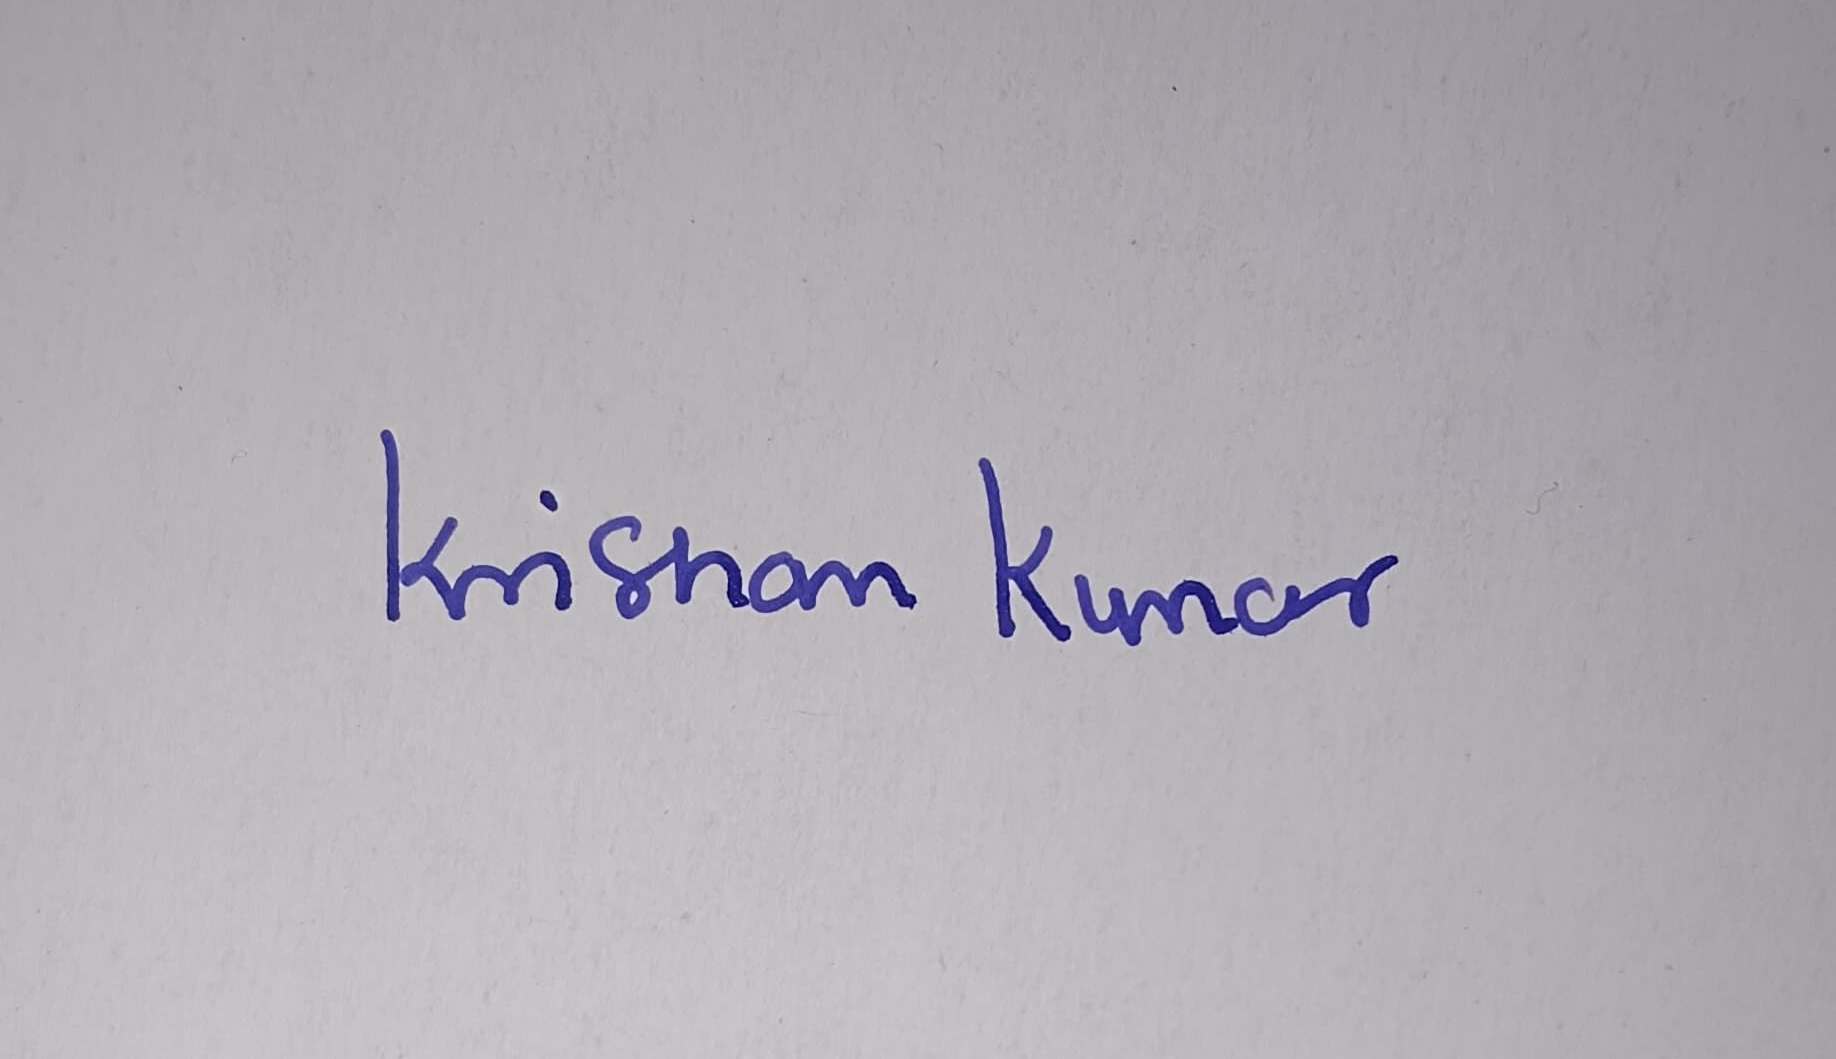 Krishan Kumar